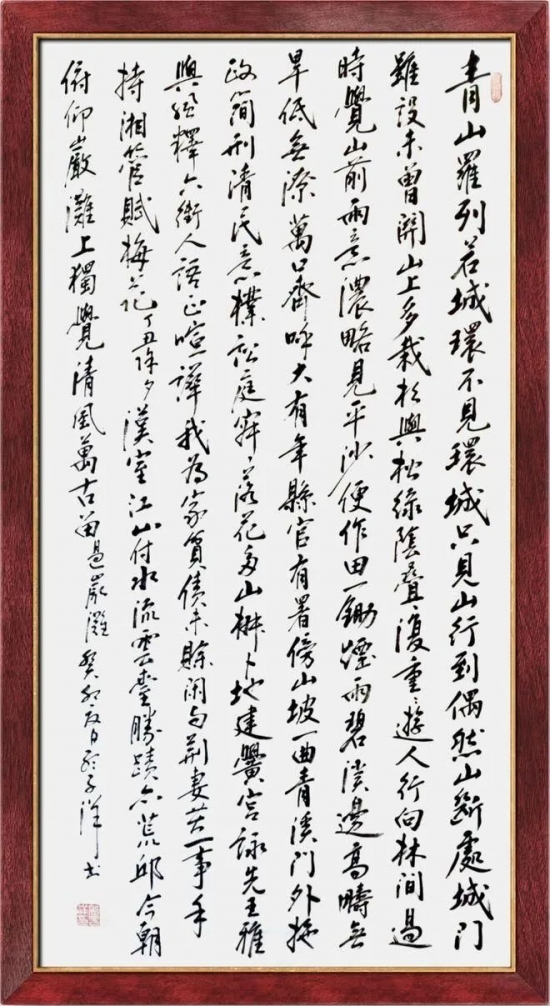 青山羅列若城環不見環城只見山行到偶然山斷處城門
雖設未曾關山上多栽杉與松綠陰疊〻復重〻遊人行向林間過
時覺山前雨意濃略見平沙便作田一鋤煙雨碧溪邊高疇無
旱低無潦萬口齊呼大有年縣官有署傍山坡一曲青溪門外拖
政簡刑清民意樸訟庭寂〻落花多山椒卜地建黌宮詠先王雅
與 釋六街人語正喧譁我為家貧債未賒閑與荊妻共一事手
持湘管賦梅花丁丑除夕漢室江山付水流雲臺勝蹟亦荒邱今朝
俯仰嚴灘上獨覺清風萬古留過嚴灘癸卯夏日 子洋書